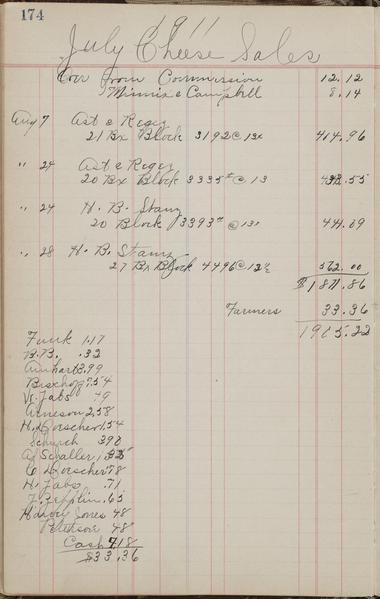 174
1911
July Cheese Sales
Over From Commission 12.12
Minnix & Campbell 8.14
Aug 7 Ast & Regez
21 Bx Block 3192 @ 13¢ 414.96
" 24 Ast & Regez
20 Bx Block 3335# @ 13 433.55
" 24 H. B. Stanz
20 Block 3393# @ 13¢ 441.09
" 28 H. B. Stanz
27 Bx Block 4496 @ 12½ 562.00
$1871.86
Farmers 33.36
1905.22
Funk 1.17
B.B. .32
Amhart 3.99
Bischop 7.54
W. Jabs
Arneson 2.58
H. Loescher 1.54
Schurch 3.90
A Schaller
C Loescher .78
H. Jabs .71
F. Zepplin .65
Jones 48
Peterson 48
Cash 7.18
$33.36